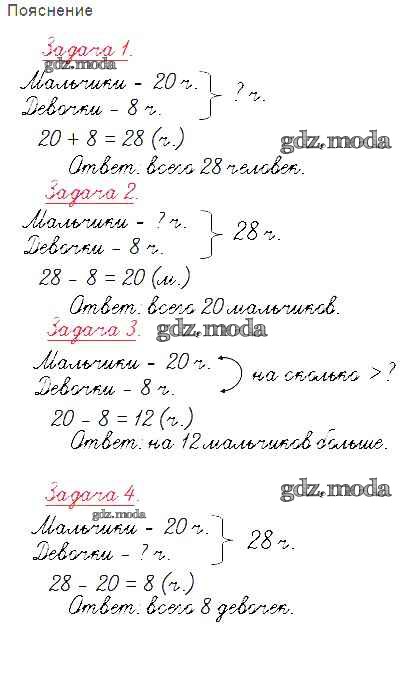 Пояснение
Задача 1.
gdz.moda
Мальчики - 20 ч.
Девочки - 8 ч.
? ч.
20 + 8 = 28 (ч.)
gdz.moda
Ответ: всего 28 человек.
Задача 2.
Мальчики - ? ч.
Девочки - 8 ч.
28 ч.
28 - 8 = 20 (м.)
Ответ: всего 20 мальчиков.
Задача 3.
gdz.moda
Мальчики - 20 ч.
Девочки - 8 ч.
на сколько > ?
20 - 8 = 12 (ч.)
Ответ: на 12 мальчиков больше.
Задача 4.
gdz.moda
gdz.moda
Мальчики - 20 ч.
Девочки - ? ч.
28 ч.
28 - 20 = 8 (ч.)
Ответ: всего 8 девочек.